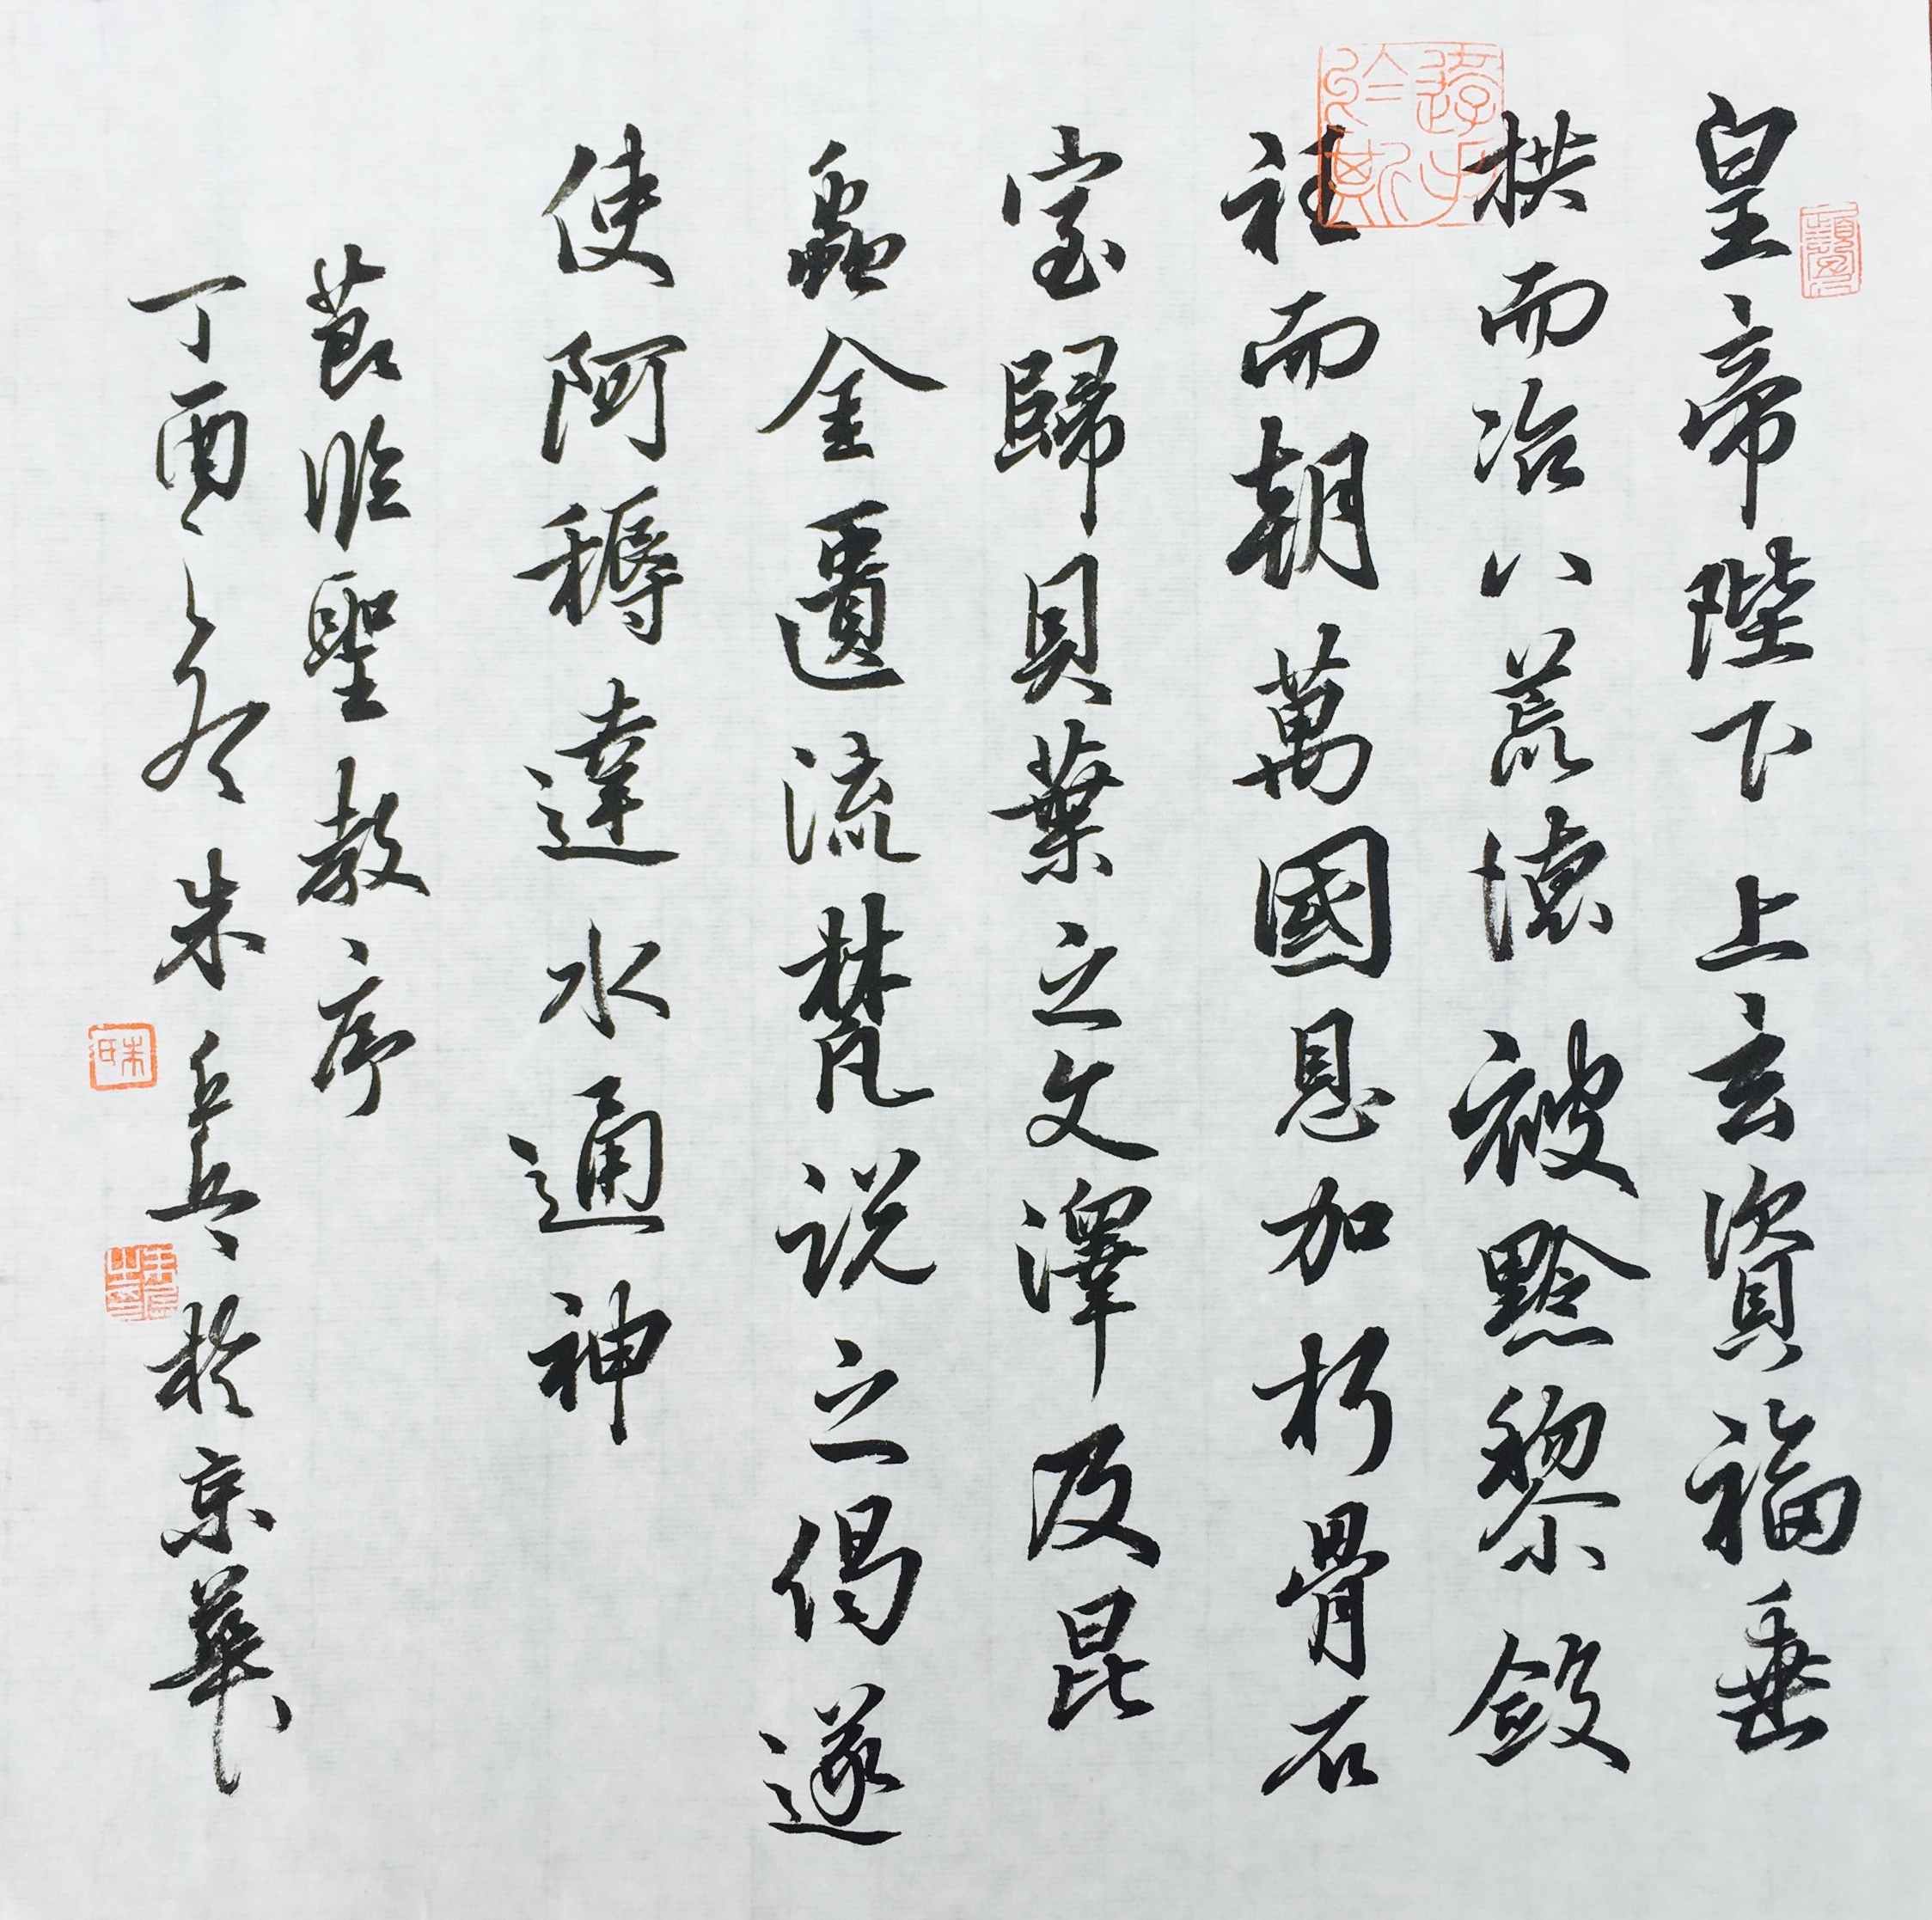 皇帝陛下上玄資福垂
拱而治八荒德被黔黎斂
衽而朝萬國恩加朽骨石
室歸貝葉之文澤及昆
蟲金匱流梵説之偈遂
使阿耨達水通神
節臨聖教序
丁酉之冬朱兵兵於京華